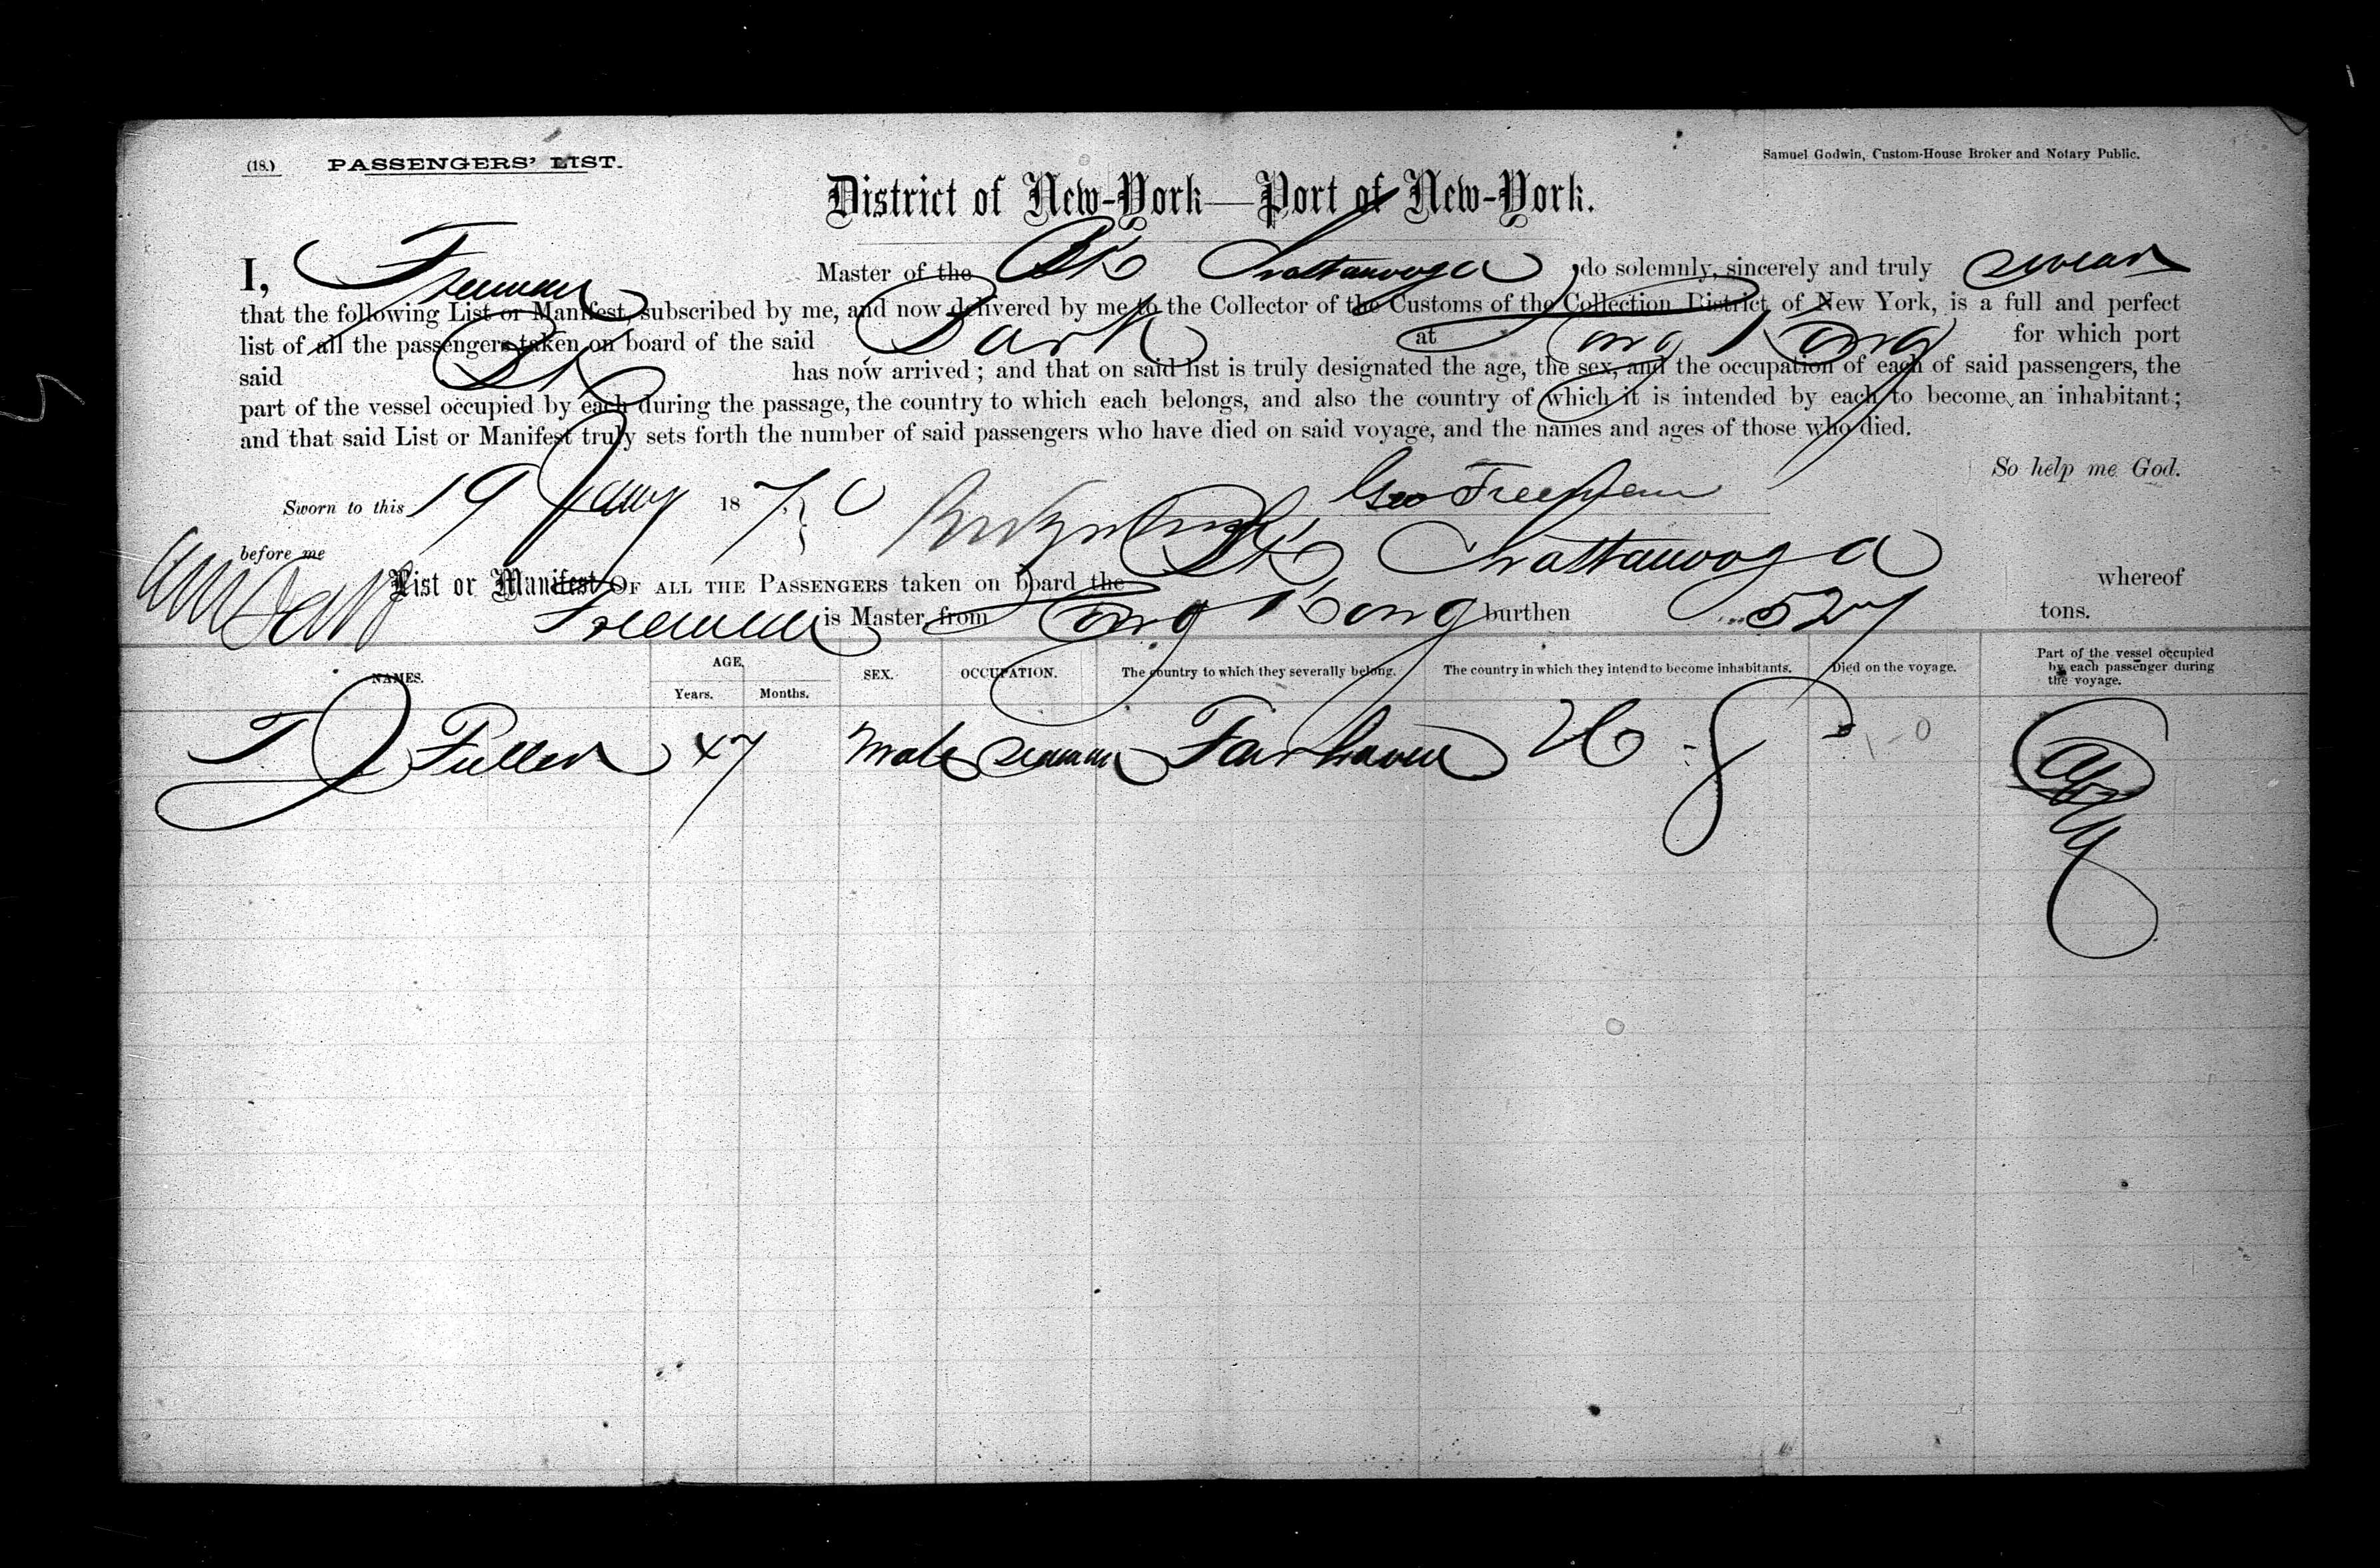 (18.) PASSENGERS' LIST.
Samuel Godwin, Custom-House Broker and Notary Public.
District of New-York—Port of New-York.
I, Freeman Master of the Bk Chattanooga do solemnly, sincerely and truly swear
that the following List or Manifest, subscribed by me, and now delivered by me to the Collector of the Customs of the Collection District of New York, is a full and perfect
list of all the passengers taken on board of the said Bark at Hong Kong for which port
said Bk has now arrived; and that on said list is truly designated the age, the sex, and the occupation of each of said passengers, the
part of the vessel occupied by each during the passage, the country to which each belongs, and also the country of which it is intended by each to become an inhabitant;
and that said List or Manifest truly sets forth the number of said passengers who have died on said voyage, and the names and ages of those who died.
So help me God.
Sworn to this 19 Jany 1870 Geo Freeman
before me
List or Manifest OF ALL THE PASSENGERS taken on board the Bk Chattanooga whereof
Freeman is Master, from Hong Kong burthen 527 tons.
NAMES. AGE, Years. Months. SEX. OCCUPATION. The country to which they severally belong. The country in which they intend to become inhabitants. Died on the voyage. Part of the vessel occupied by each passenger during the voyage.
T J Fuller 47 Male seaman Fairhaven U S